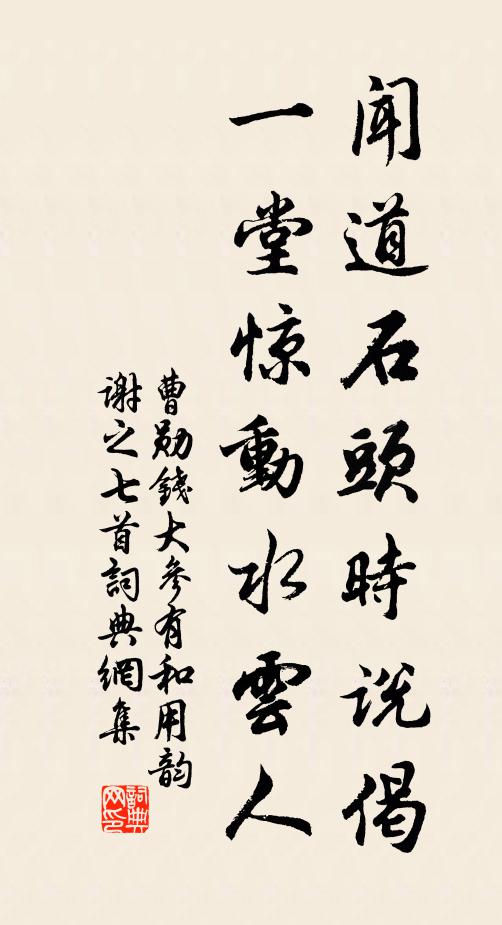 闻道石頭時説偈
一堂惊動水雲人
曹勋錢大參有和用韵
谢之七首詞典網集
詞典网印